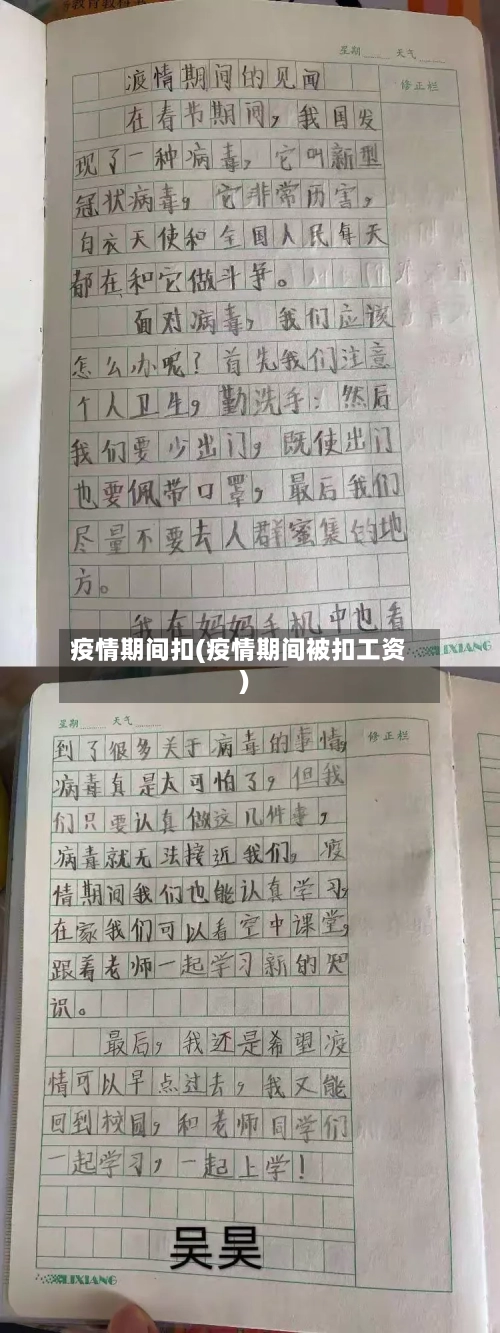 星期 天气
修正栏
疫情期间的见闻
在春节期间，我国发
现了一种病毒，它叫新型
冠状病毒，它非常历害，
白衣天使和全国人民每天
都在和它做斗争。
面对病毒，我们应该
怎么办呢？首先我们注意
个人卫生，勤洗手；然后
我们要少出门，既使出门
也要佩带口罩，最后我们
尽量不要去人群蜜集的地
方。
我在妈妈手机中也看
疫情期间扣(疫情期间被扣工资
)
LIXIANG
星期 天气
修正栏
到了很多关于病毒的事情，
病毒真是太可怕了，但我
们只要认真做这几件事，
病毒就无法接近我们，疫
情期间我们也能认真学习，
在家我们可以看空中课堂，
跟着老师一起学习新的知
识。
最后，我还是希望疫
情可以早点过去，我又能
回到校园，和老师同学们
一起学习，一起上学！
吴昊
LIXIANG